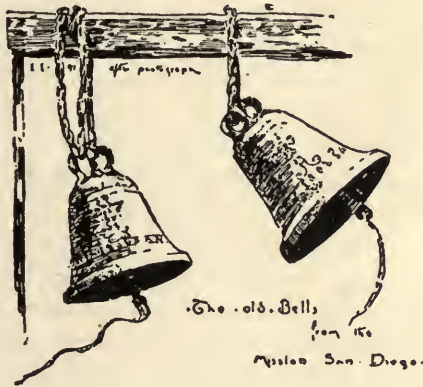 after photograph
The old Bells
from the
Mission San Diego.